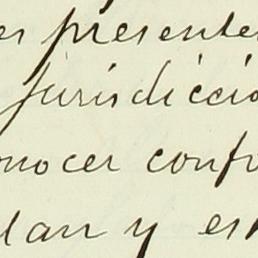 es presente
jurisdicció
onocer conf
lan y es